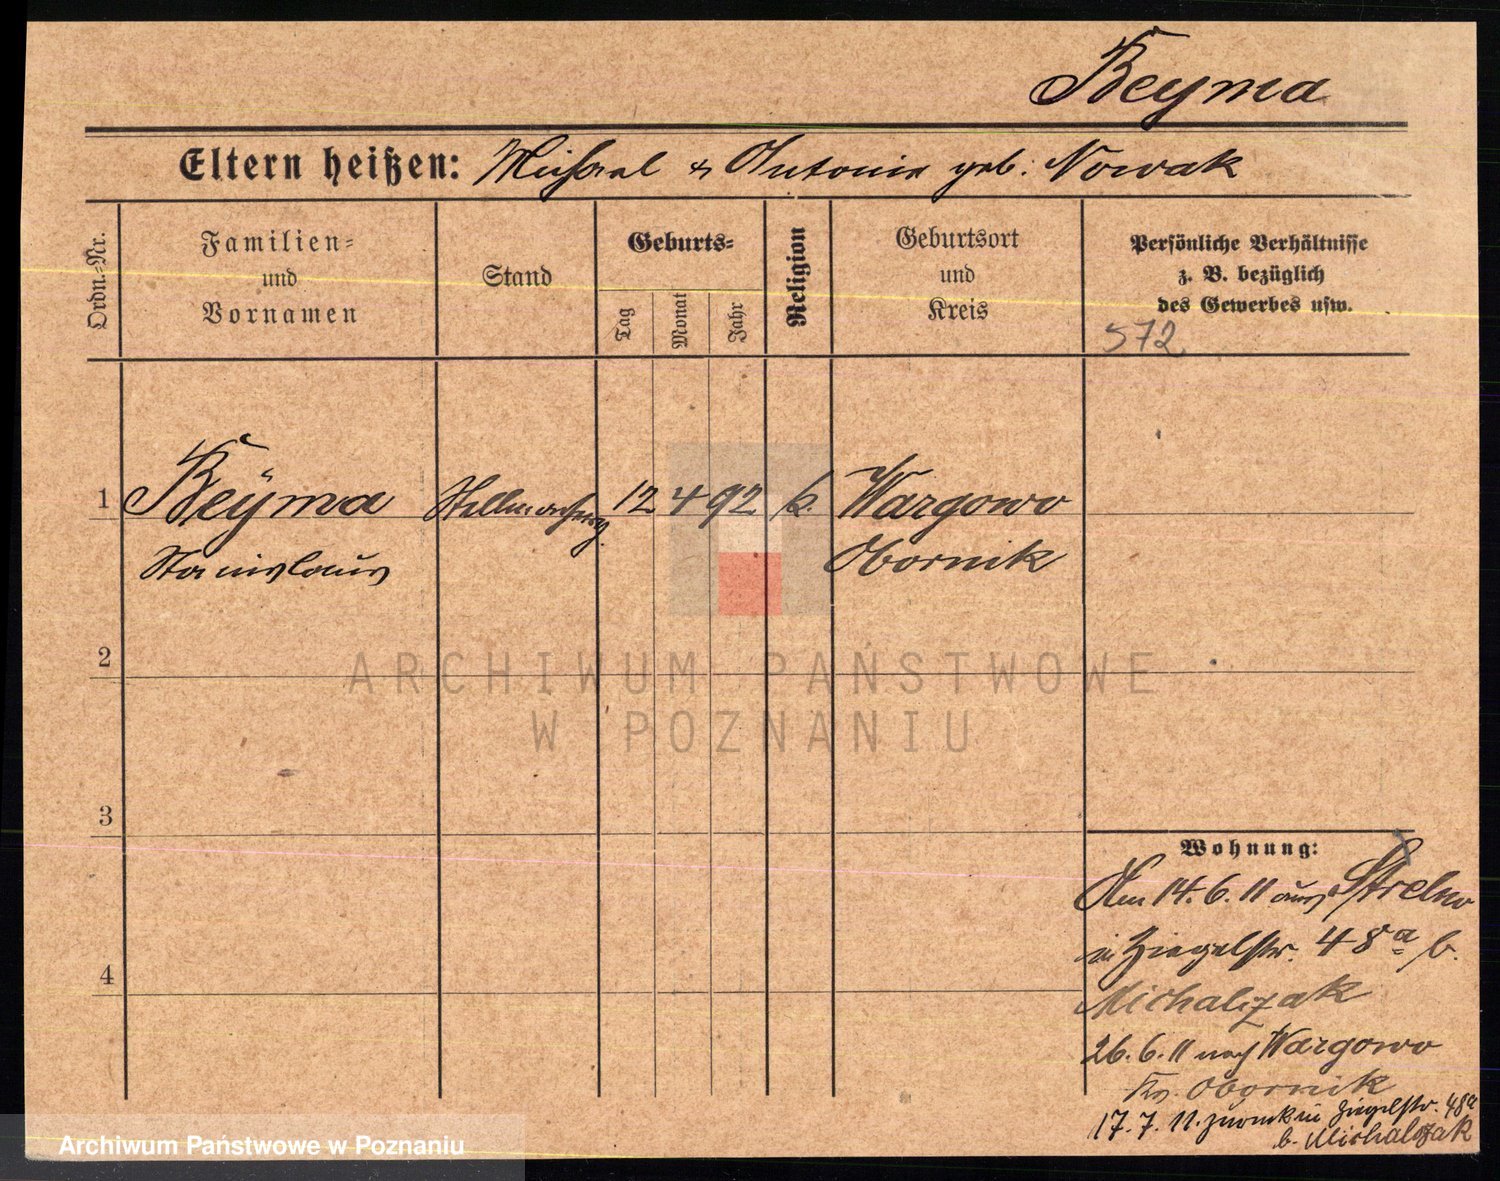 Beyma
Eltern heißen: Michael & Antonie geb. Nowak
Ordn.=Nr.
Familien=
und
Vornamen
Stand
Geburts=
Tag
Monat
Jahr
Religion
Geburtsort
und
Kreis
Persönliche Verhältnisse
z. B. bezüglich
des Gewerbes usw.
572
1 Beÿma 12 4 92 k. Wargowo
Stanislaus Obornik
2
3
4
Wohnung:
Am 14.6.11 aus Strelno
in Ziegelstr. 48a b.
Michalczak
26.6.11 nach Wargowo
Kr. Obornik
17.7.11. zurück in Ziegelstr. 48a
b. Michalczak
ARCHIWUM PAŃSTWOWE
W POZNANIU
Archiwum Państwowe w Poznaniu